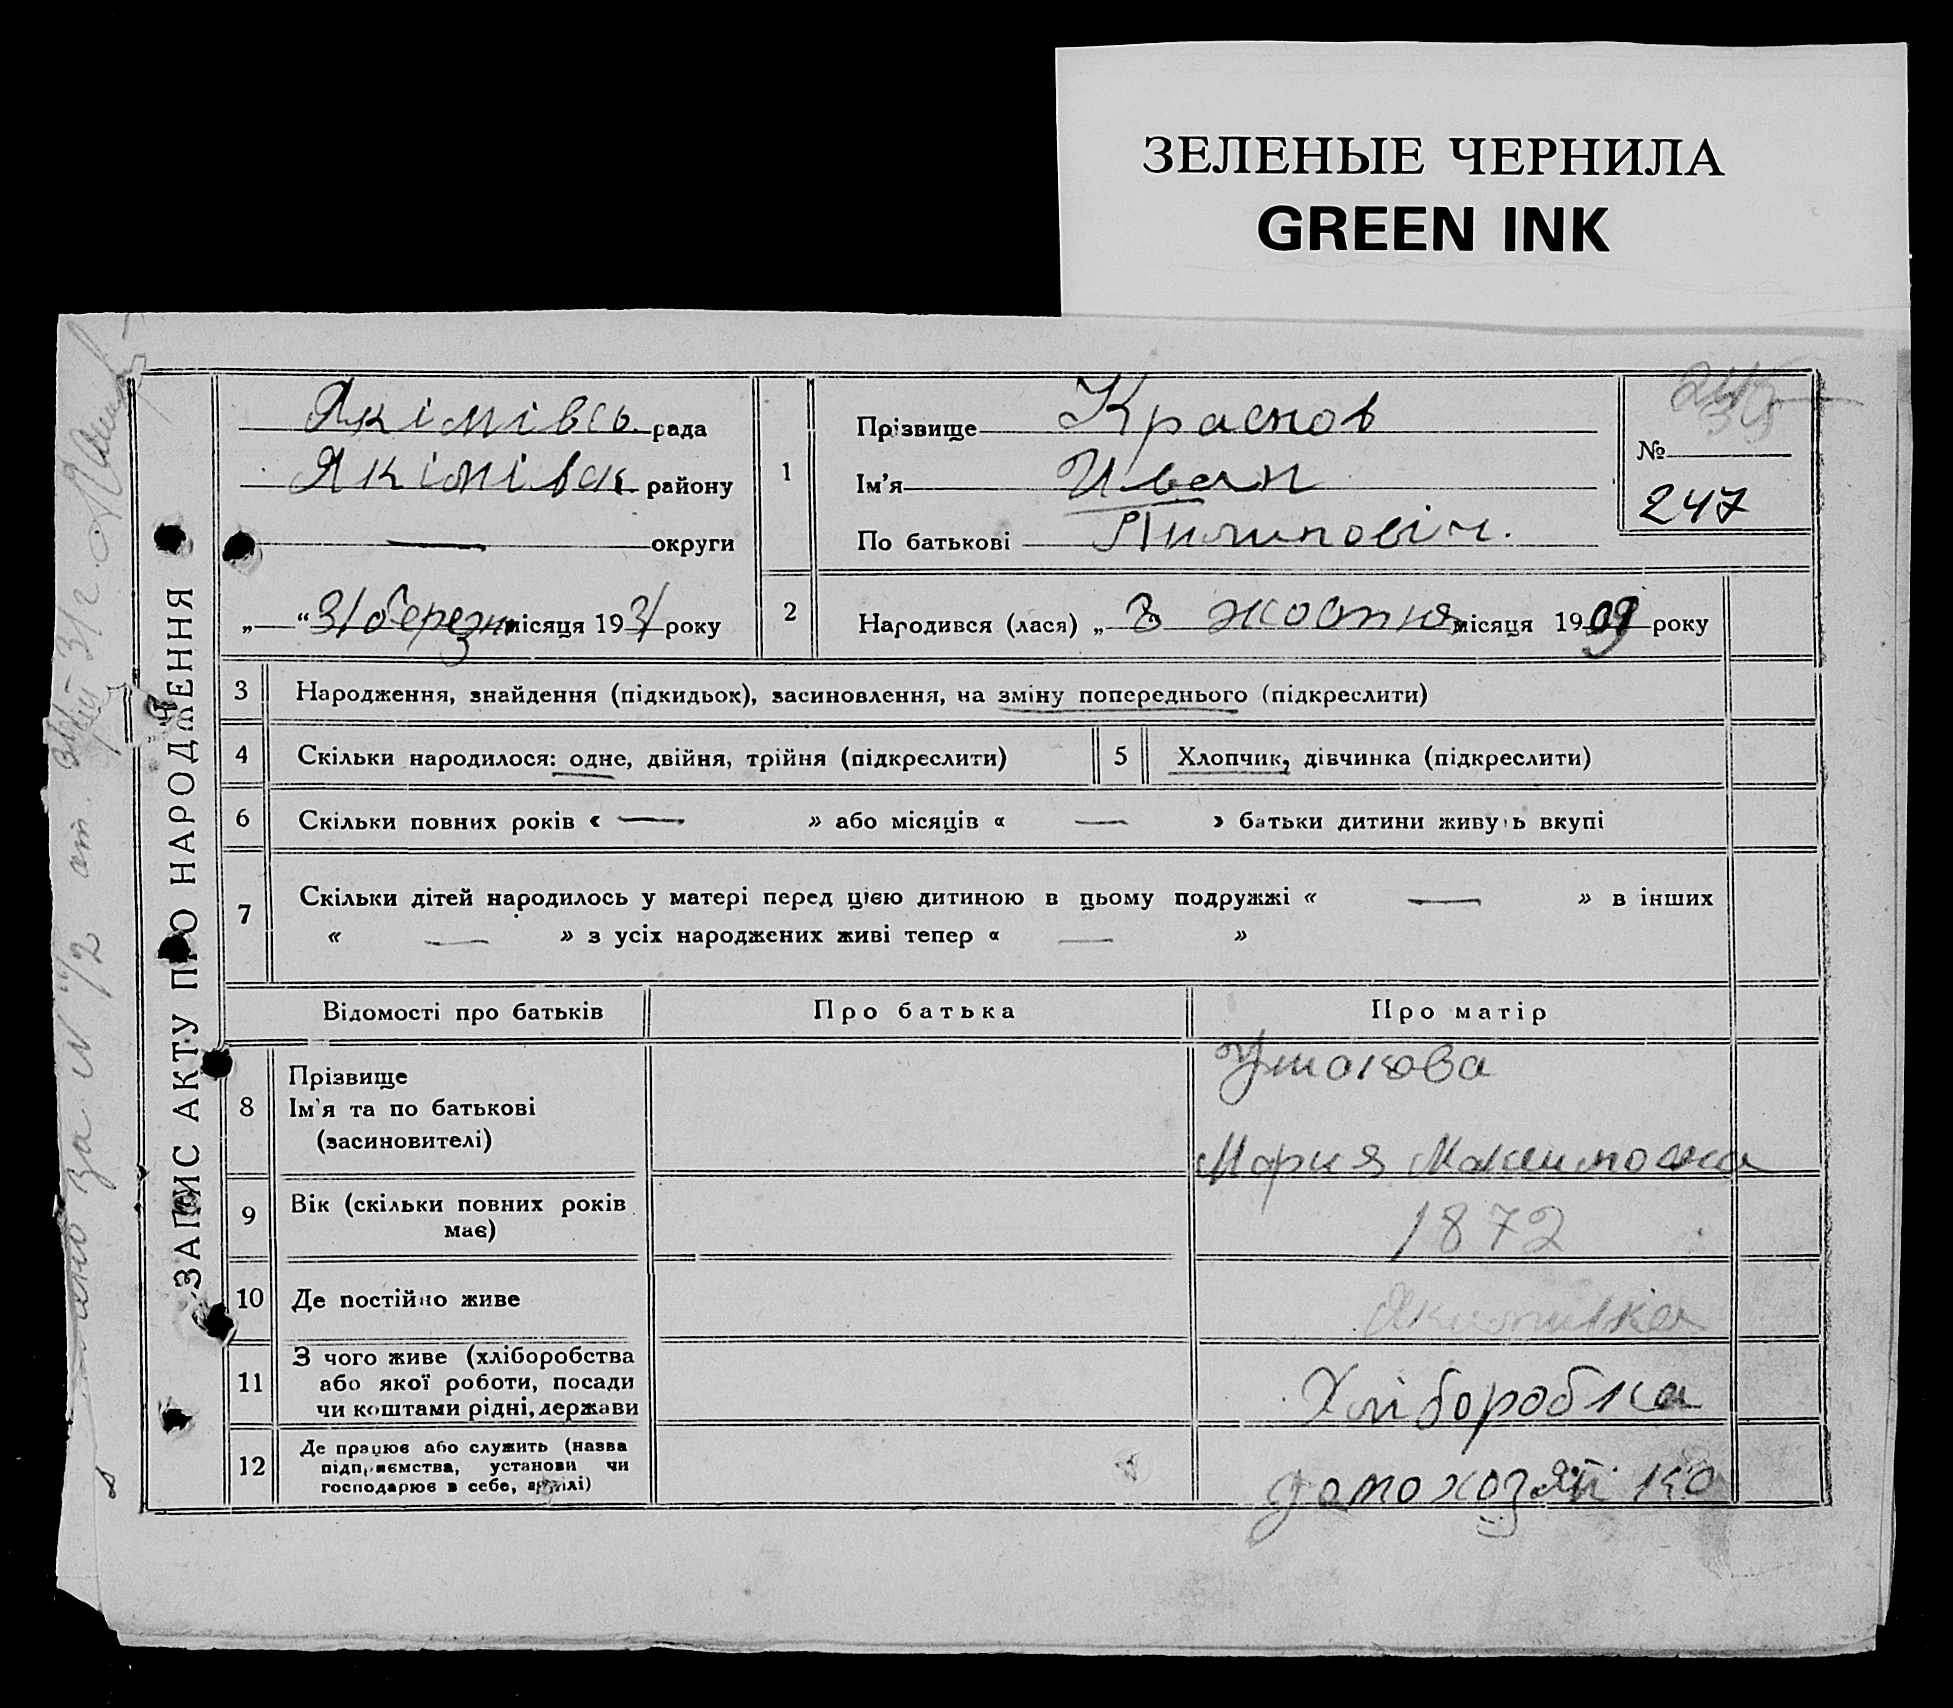 ЗЕЛЕНЫЕ ЧЕРНИЛА
GREEN INK
ЗАПИС АКТУ ПРО НАРОДЖЕННЯ
Якімівсь. рада
Якімівск району
— округи
„ “ 31 березн місяця 1931 року
1
Прізвище Краснов
Ім'я Иван
По батькові Пилипович.
№
247
2
Народився (лася) „ 3 жовтня місяця 1909 року
3 Народження, знайдення (підкидьок), засиновлення, на зміну попереднього (підкреслити)
4 Скільки народилося: одне, двійня, трійня (підкреслити)
5 Хлопчик, дівчинка (підкреслити)
6 Скільки повних років « — » або місяців « — » батьки дитини живуть вкупі
7 Скільки дітей народилось у матері перед цією дитиною в цьому подружжі « — » в інших
« — » з усіх народжених живі тепер « — »
Відомості про батьків Про батька Про матір
8
Прізвище
Ім'я та по батькові
(засиновителі)
Ушакова
Мария Максимовна
9
Вік (скільки повних років
має)
1872
10 Де постійно живе
Якимивка
11
З чого живе (хліборобства
або якої роботи, посади
чи коштами рідні, держави
Хліборобка
12
Де працює або служить (назва
підприємства, установи чи
господарює в себе, артілі)
домохозяйка